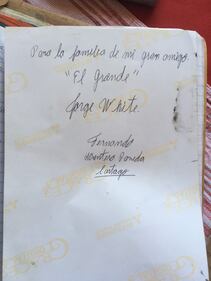 Para la familia de mi gran amigo.
"El Grande"
Jorge White.
Fernando
Montero
Cartago